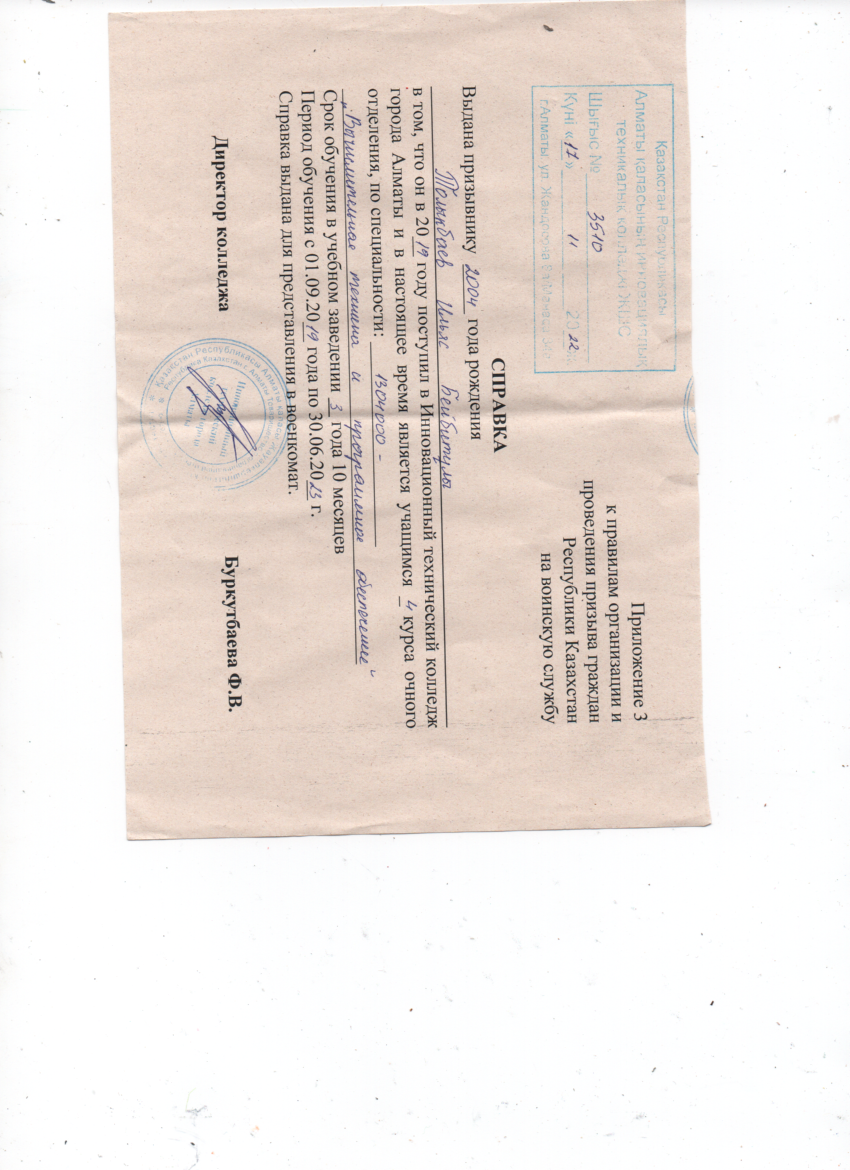 Қазақстан Республикасы
Алматы қаласының инновациялық
техникалық колледжі ЖШС
Шығыс № 3510
Күні «17» 11 2022
г.Алматы ул Жандосова
Приложение 3
к правилам организации и
проведения призыва граждан
Республики Казахстан
на воинскую службу
СПРАВКА
Выдана призывнику 2004 года рождения
Толыкбаев Ильяс Бейбитулы
в том, что он в 2019 году поступил в Инновационный технический колледж
города Алматы и в настоящее время является учащимся 4 курса очного
отделения, по специальности: 1304000 -
„Вычислительная техника и программное обеспечение"
Срок обучения в учебном заведении 3 года 10 месяцев
Период обучения с 01.09.2019 года по 30.06.2023 г.
Справка выдана для представления в военкомат.
Директор колледжа Буркутбаева Ф.В.
Қазақстан Республикасы Алматы қаласы